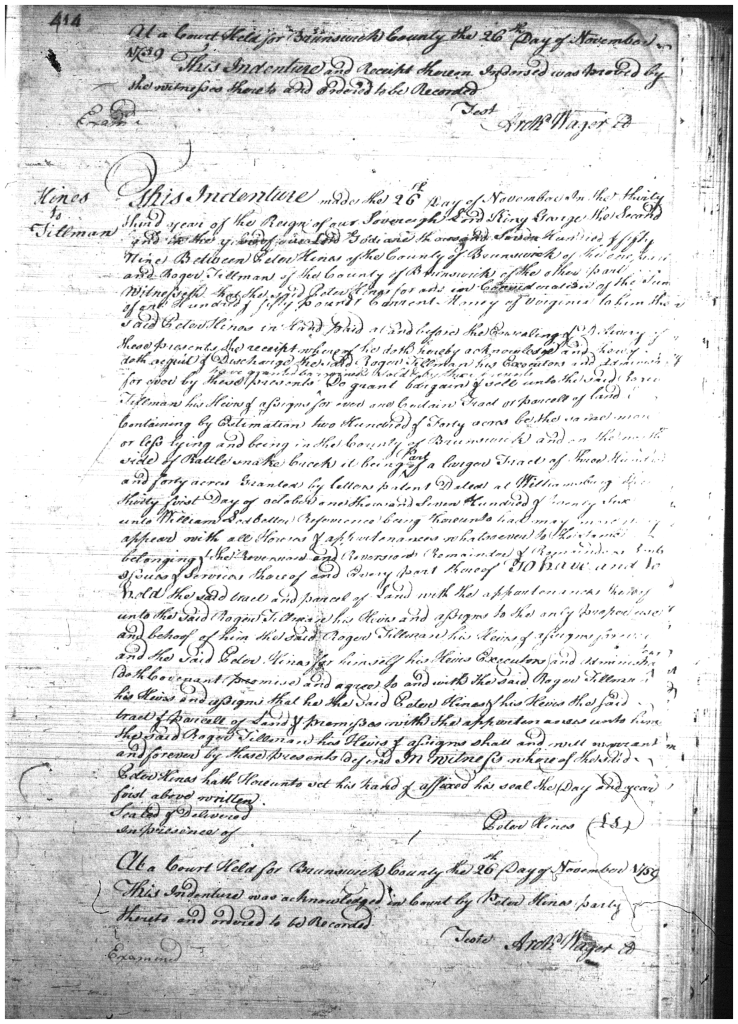 414
At a Court Held for Brunswick County the 26th Day of November
1759 This Indenture and Receipt thereon Indorsed was proved by
the witnesses thereto and ordered to be Recorded
Test
Examd
Archd Wager Cl
Hines
to
Tillman
This Indenture made the 26th Day of November In the thirty
third year of the Reign of our Sovereign Lord King George the Second
and in the year of our Lord God one thousand Seven Hundred & fifty
Nine Between Peter Hines of the County of Brunswick of the one part
and Roger Tillman of the County of Brunswick of the other part
Witnesseth that the said Peter Hines for and in Consideration of the Sum
of one Hundred & fifty pounds Current Money of Virginia to him the
said Peter Hines in Hand paid at and before the Ensealing & Delivery of
these presents the receipt whereof he doth hereby acknowledge and thereof
doth acquit & Discharge the said Roger Tillman his Executors and
have granted bargained & sold & by these presents
for ever by these presents Do grant bargain & sell unto the said Roger
Tillman his Heirs & assigns for ever one Certain Tract or parcell of Land
Containing by Estimation two Hundred & Forty acres be the same more
or less lying and being in the County of Brunswick and on the north
side of Rattle snake Creek it being Part of a larger Tract of three Hundred
and forty acres Granted by letters patent Dated at Williamsburg the
thirty first Day of october one thousand Seven Hundred & Twenty Six
unto William Ledbetter Reference being thereunto had may
appear with all Houses & appurtenances whatsoever to the same
belonging & the Reversion and Reversions Remainder & Remainders Rents
Issues & Services thereof and Every part thereof To have and to
hold the said tract and parcel of Land with the appurtenances thereof
unto the said Roger Tillman his Heirs and assigns to the only proper use
and behoof of him the said Roger Tillman his Heirs & assigns forever
and the said Peter Hines for himself his Heirs Executors and Administrators
doth Covenant promise and agree to and with the said Roger Tillman
his Heirs and assigns that he the said Peter Hines & his Heirs the said
tract & parcell of Land & premises with the appurtenances unto him
the said Roger Tillman his Heirs & assigns shall and will warrant
and forever by these presents defend In Witness whereof the said
Peter Hines hath Hereunto set his hand & affixed his seal the Day and year
first above written.
Sealed & Delivered
In presence of
Peter Hines (LS)
At a Court Held for Brunswick County the 26th Day of November 1759
This Indenture was acknowledged in Court by Peter Hines party
thereto and ordered to be Recorded
Teste Archd Wager Cl
Examined